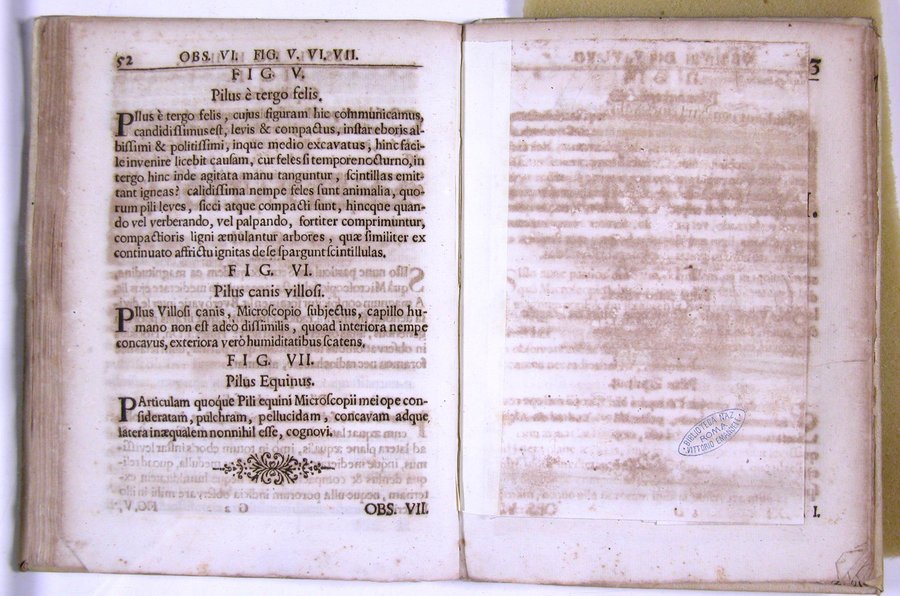 52 OBS. VI. FIG. V. VI. VII.
FIG. V.
Pilus è tergo felis.
PIlus è tergo felis, cujus figuram hic communicamus,
candidissimus est, levis & compactus, instar eboris al-
bissimi & politissimi, inque medio excavatus, hinc faci-
le invenire licebit causam, cur feles si tempore nocturno, in
tergo hinc inde agitata manu tanguntur, scintillas emit-
tant igneas? calidissima nempe feles sunt animalia, quo-
rum pili leves, sicci atque compacti sunt, hincque quan-
do vel verberando, vel palpando, fortiter comprimuntur,
compactioris ligni æmulantur arbores, quæ similiter ex
continuato affrictu ignitas de se spargunt scintillulas.
FIG. VI.
Pilus canis villosi.
PIlus Villosi canis, Microscopio subjectus, capillo hu-
mano non est adeò dissimilis, quoad interiora nempe
concavus, exteriora verò humiditatibus scatens.
FIG. VII.
Pilus Equinus.
PArticulam quoque Pili equini Microscopii mei ope con-
sideratam, pulchram, pellucidam, concavam adque
latera inæqualem nonnihil esse, cognovi.
OBS. VII.
3
BIBLIOTECA NAZ
ROMA
VITTORIO EMANUELE
I.